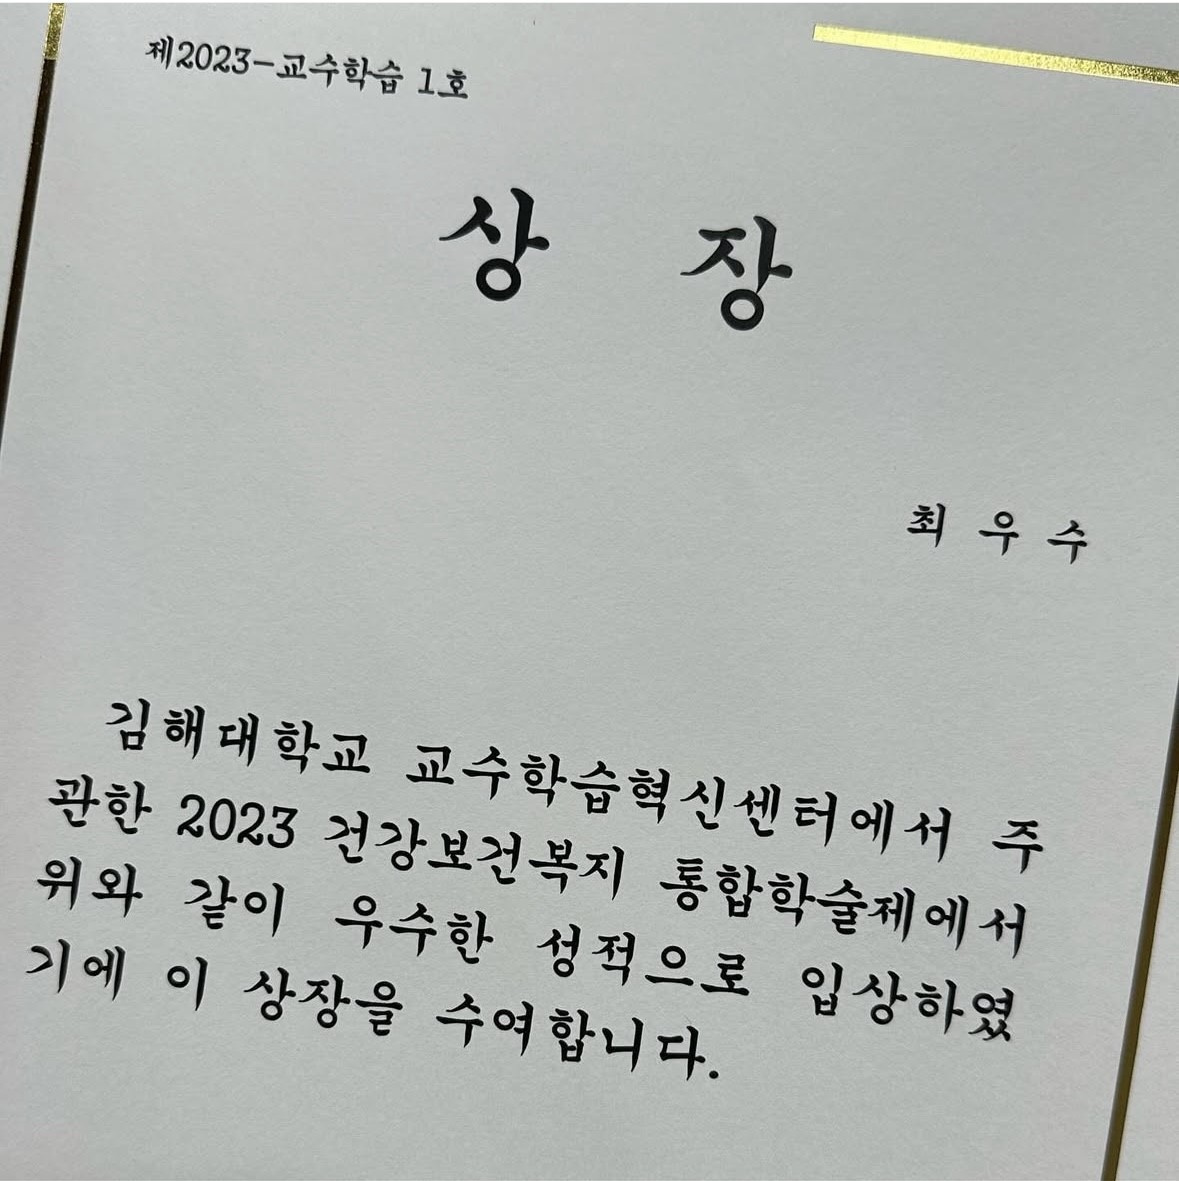 제2023-교수학습 1호
상 장
최 우 수
김해대학교 교수학습혁신센터에서 주
관한 2023 건강보건복지 통합학술제에서
위와 같이 우수한 성적으로 입상하였
기에 이 상장을 수여합니다.